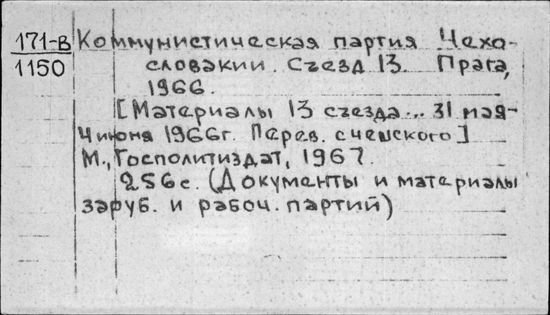 171-в Коммунистическая партия Чехо-
1150 словакии. Съезд 13. Прага,
1966.
[Материалы 13 съезда... 31 мая-
4 июня 1966г. Перев. с чешского]
М., Госполитиздат, 1967.
256с. (Документы и материалы
заруб. и рабоч. партий)